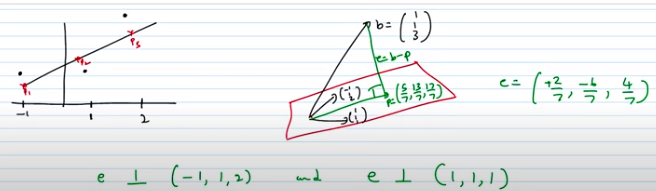 P₁
P₂
P₃
-1 1 2
b = (1 1 3)
e=b-p
(-1 1 2)
P=(5/7, 13/7, 17/7)
(1 1 1)
e = (+2/7, -6/7, 4/7)
e ⊥ (-1, 1, 2) and e ⊥ (1, 1, 1)